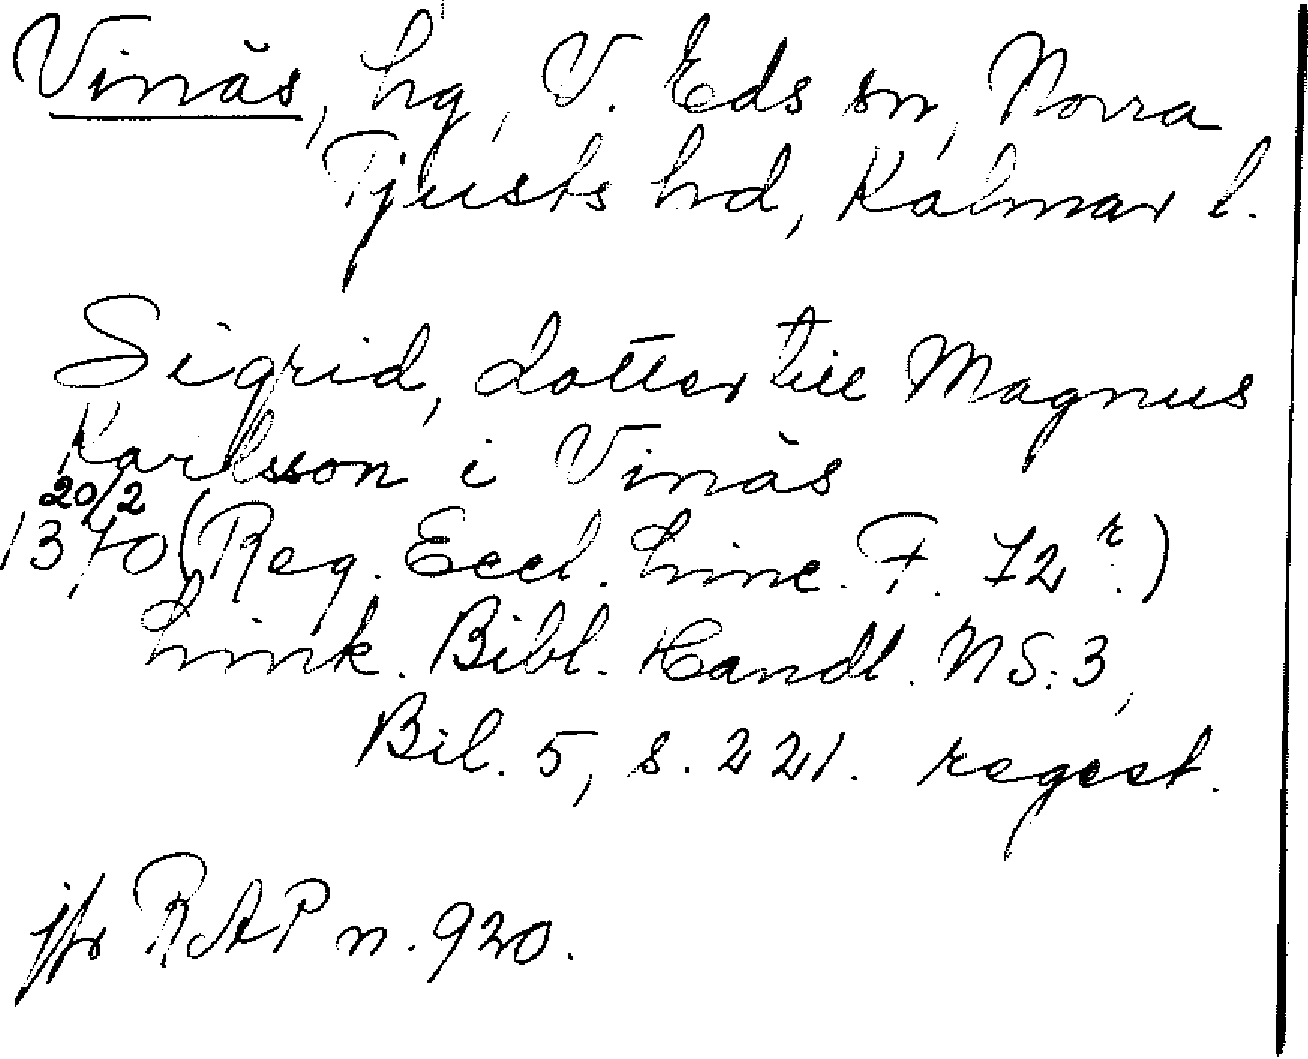 Vinäs, hg, V. Eds sn, Norra
Tjusts hd, Kalmar l.
Sigrid, dotter till Magnus
Karlsson i Vinäs
20/2
1370 (Reg. Eccl. Linc. F. 72 r.)
Link. Bibl. Handl. NS: 3,
Bil. 5, s. 221. regest.
jfr RAP n. 920.